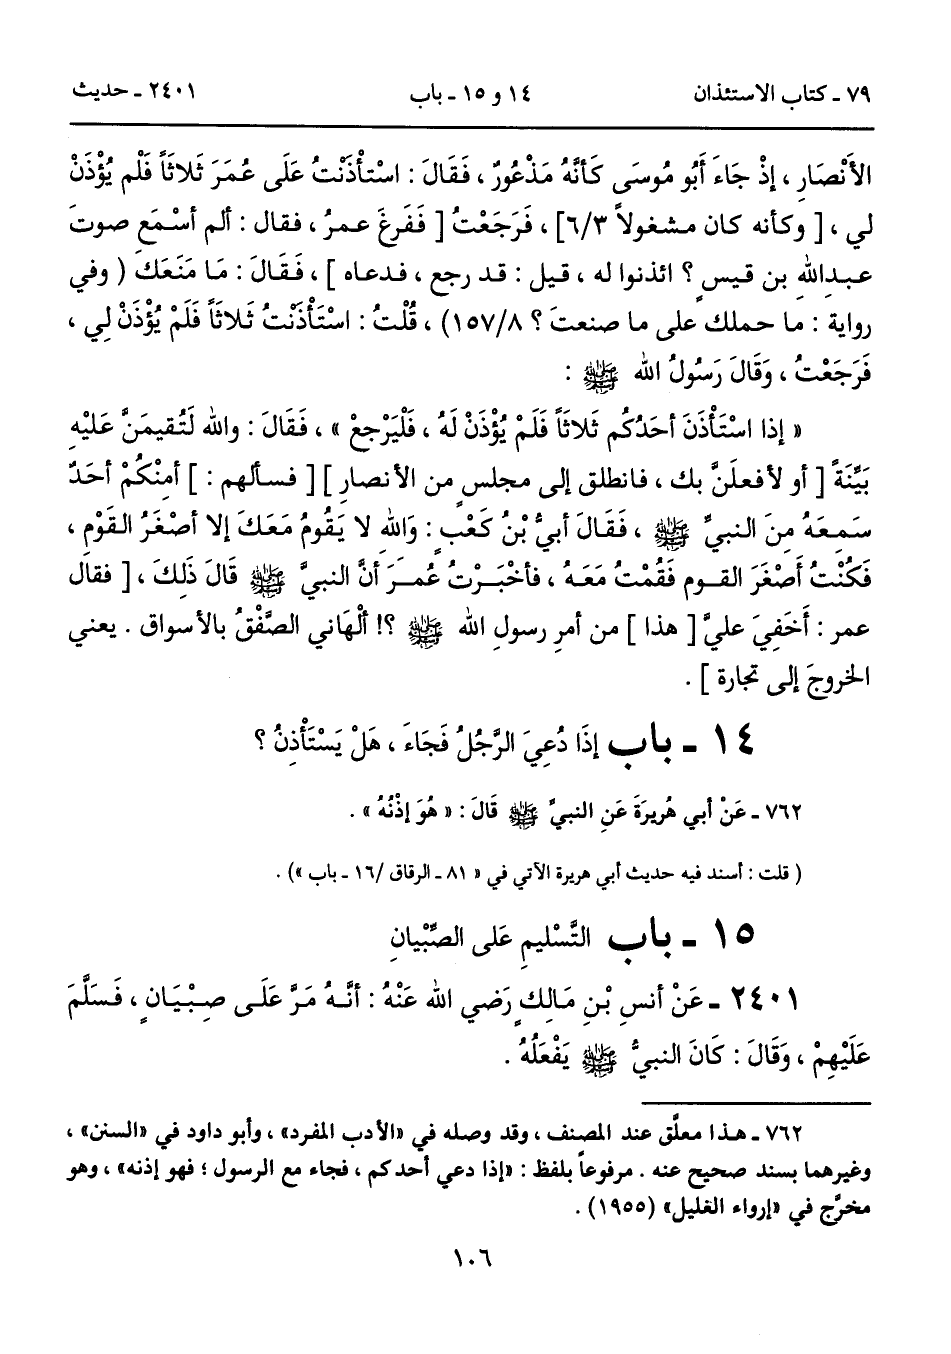 ٧٩ ـ كتاب الاستئذان ١٤ و ١٥ ـ باب ٢٤٠١ ـ حديث
الأَنْصَارِ ، إِذْ جَاءَ أَبُو مُوسَى كَأَنَّهُ مَذْعُورٌ ، فَقَالَ : اسْتَأْذَنْتُ عَلَى عُمَرَ ثَلَاثَاً فَلَم يُؤْذَنْ
لي ، [ وكأنه كان مشغولاً ٦/٣] ، فَرَجَعْتُ [ فَفَرِغَ عمرُ ، فقال : ألم أسْمَع صوتَ
عبدِاللهِ بن قيسٍ ؟ ائذنوا له ، قيل : قد رجع ، فدعاه ] ، فَقَالَ : مَا مَنَعَكَ ( وفي
رواية : ما حملك على ما صنعتَ ؟ ١٥٧/٨) ، قُلْتُ : اسْتَأْذَنْتُ ثَلَاثَاً فَلَمْ يُؤْذَنْ لِي ،
فَرَجَعْتُ ، وَقَالَ رَسُولُ الله ﷺ :
« إذا اسْتَأْذَنَ أحَدُكُم ثَلَاثَاً فَلَمْ يُؤْذَنْ لَهُ ، فَلْيَرْجِعْ » ، فَقَالَ : والله لَتُقيمَنَّ عَلَيْهِ
بَيِّنَةً [ أو لأفعلَنَّ بك ، فانطلق إلى مجلسٍ من الأنصارِ ] [ فسألهم : ] أمِنْكُمْ أحَدٌ
سَمِعَهُ مِنَ النبيِّ ﷺ ، فَقَالَ أبيُّ بْنُ كَعْبٍ : وَاللهِ لا يَقُومُ مَعَكَ إلا أصْغَرُ القَوْمِ ،
فَكُنْتُ أَصْغَرَ القومِ فَقُمْتُ مَعَهُ ، فأخْبَرْتُ عُمَرَ أنَّ النبيَّ ﷺ قَالَ ذَلِكَ ، [ فقال
عمر : أَخَفِيَ عليَّ [ هذا ] من أمرِ رسولِ الله ﷺ ؟! ألْهَاني الصَّفْقُ بالأسواق . يعني
الخروجَ إلى تجارة ] .
١٤ ـ باب إِذَا دُعِيَ الرَّجُلُ فَجَاءَ ، هَلْ يَسْتَأْذِنُ ؟
٧٦٢ ـ عَنْ أبي هُرِيرَةَ عَنِ النبيِّ ﷺ قَالَ : « هُوَ إذْنُهُ » .
( قلت : أسند فيه حديث أبي هريرة الآتي في « ٨١ ـ الرقاق /١٦ ـ باب ») .
١٥ ـ باب التَّسْليمِ عَلى الصِّبْيانِ
٢٤٠١ ـ عَنْ أنسِ بْنِ مَالِكٍ رَضي الله عَنْهُ : أنَّهُ مَرَّ عَلَى صِبْيَانٍ ، فَسَلَّمَ
عَلَيْهِمْ ، وَقَالَ : كَانَ النبيُّ ﷺ يَفْعَلُهُ .
٧٦٢ ـ هذا معلَّق عند المصنف ، وقد وصله في «الأدب المفرد» ، وأبو داود في «السنن» ،
وغيرهما بسند صحيح عنه . مرفوعاً بلفظ : «إذا دعي أحدكم ، فجاء مع الرسول ؛ فهو إذنه» ، وهو
مخرَّج في «إرواء الغليل» (١٩٥٥) .
١٠٦